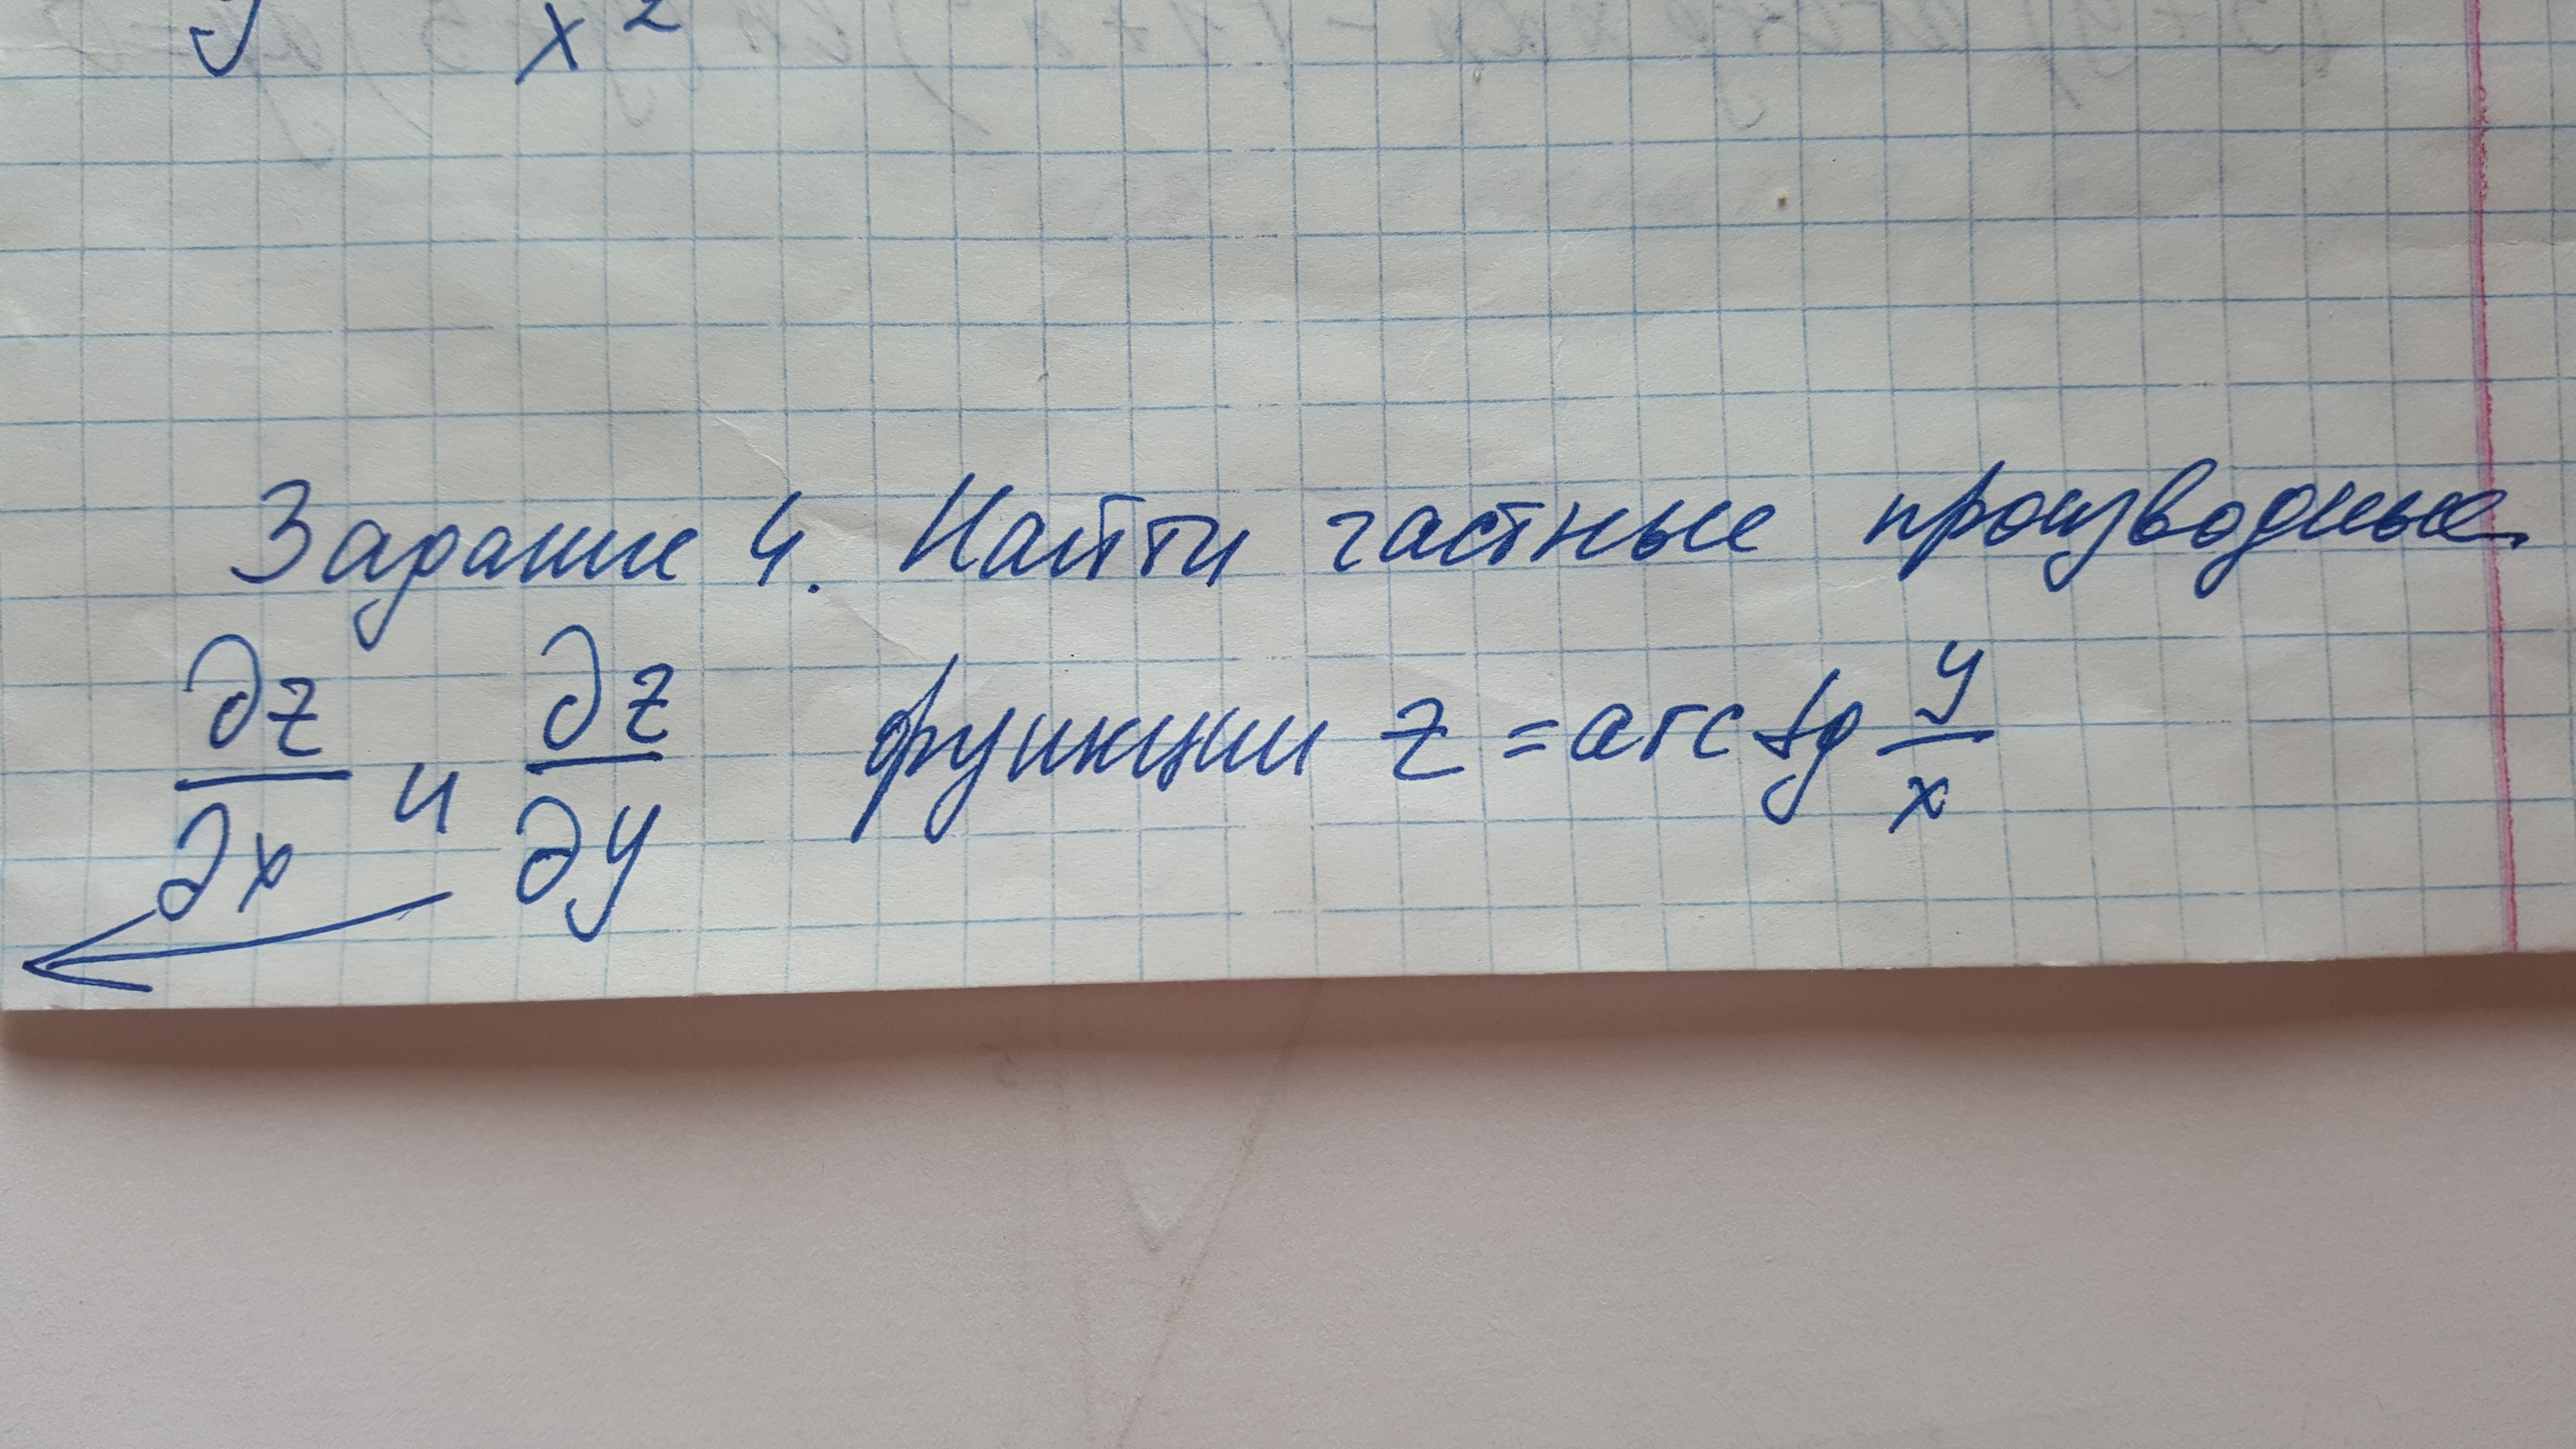 y x²
Задание 4. Найти частные производные
∂z/∂x и ∂z/∂y функции z = arctg y/x